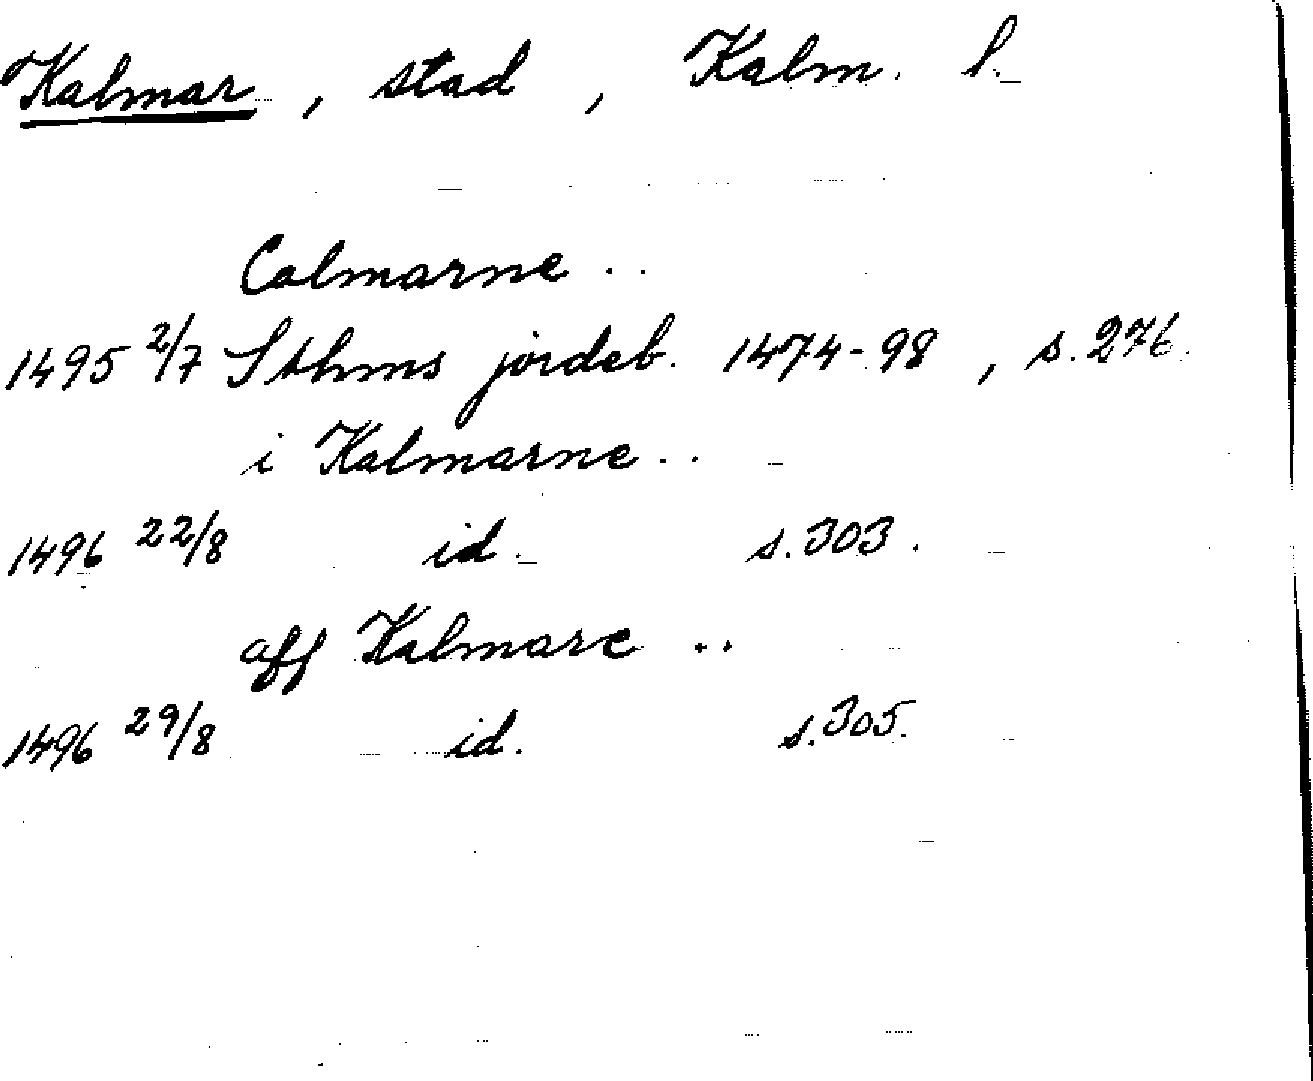 Kalmar, stad, Kalm. l.
Calmarne ..
1495 2/7 Sthms jordeb. 1474-98, s. 276.
i Kalmarne ..
1496 22/8 id. s. 303.
aff Kalmare ..
1496 29/8 id. s. 305.